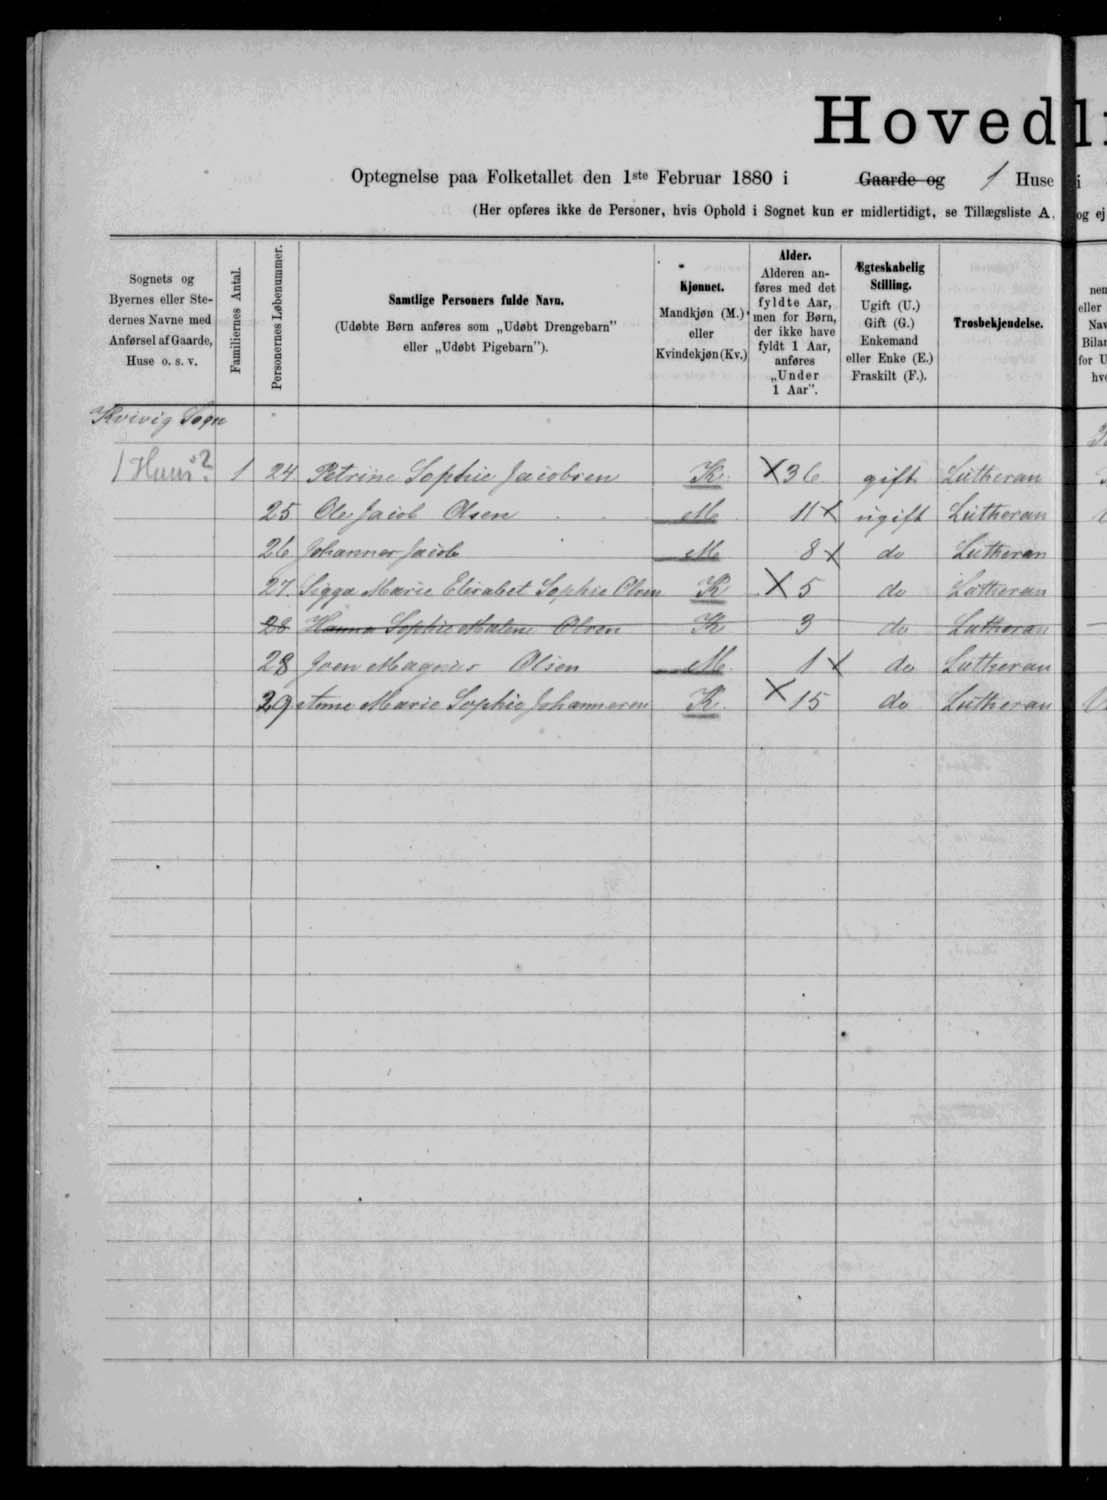 Hovedli
Optegnelse paa Folketallet den 1ste Februar 1880 i Gaarde og 1 Huse i
(Her opføres ikke de Personer, hvis Ophold i Sognet kun er midlertidigt, se Tillægsliste A. og ej
Sognets og Byernes eller Stedernes Navne med Anførsel af Gaarde, Huse o. s. v.
Familiernes Antal.
Personernes Løbenummer.
Samtlige Personers fulde Navn.
(Udøbte Børn anføres som „Udøbt Drengebarn"
eller „Udøbt Pigebarn").
Kjønnet.
Mandkjøn (M.)
eller
Kvindekjøn (Kv.)
Alder.
Alderen an-
føres med det
fyldte Aar,
men for Børn,
der ikke have
fyldt 1 Aar,
anføres
„Under
1 Aar".
Ægteskabelig
Stilling.
Ugift (U.)
Gift (G.)
Enkemand
eller Enke (E.)
Fraskilt (F.).
Trosbekjendelse.
Kvivig Sogn
1 Huus 2. 1 24 Petrine Sophie Jacobsen K. 36 gift Lutheran
25 Ole Jacob Olsen M 11 ugift Lutheran
26 Johannes Jacob M 8 do Lutheran
27. Sigga Marie Elisabet Sophie Olsen K 5 do Lutheran
28 Hanna Sophie Malene Olsen K 3 do Lutheran
28 Joen Magnus Olsen M. 1 do Lutheran
29 Anne Marie Sophie Johannesen K. 15 do Lutheran